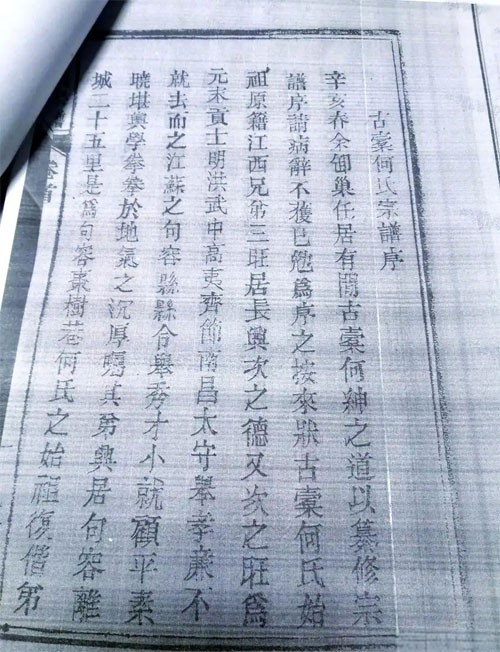 古橐何氏宗譜序
辛亥春余卸巢任居有間古橐何紳之道以纂修宗
譜序請病辭不獲已勉爲序之按來狀古橐何氏始
祖原籍江西兄弟三旺居長興次之德又次之旺爲
元末貢士明洪武中高夷齊節南昌太守舉孝亷不
就去而之江蘇之句容縣縣令舉秀才小就顧平素
曉堪輿學拳拳於地氣之沉厚囑其弟興居句容離
城二十五里是爲句容棗樹巷何氏之始祖復偕弟
卷首